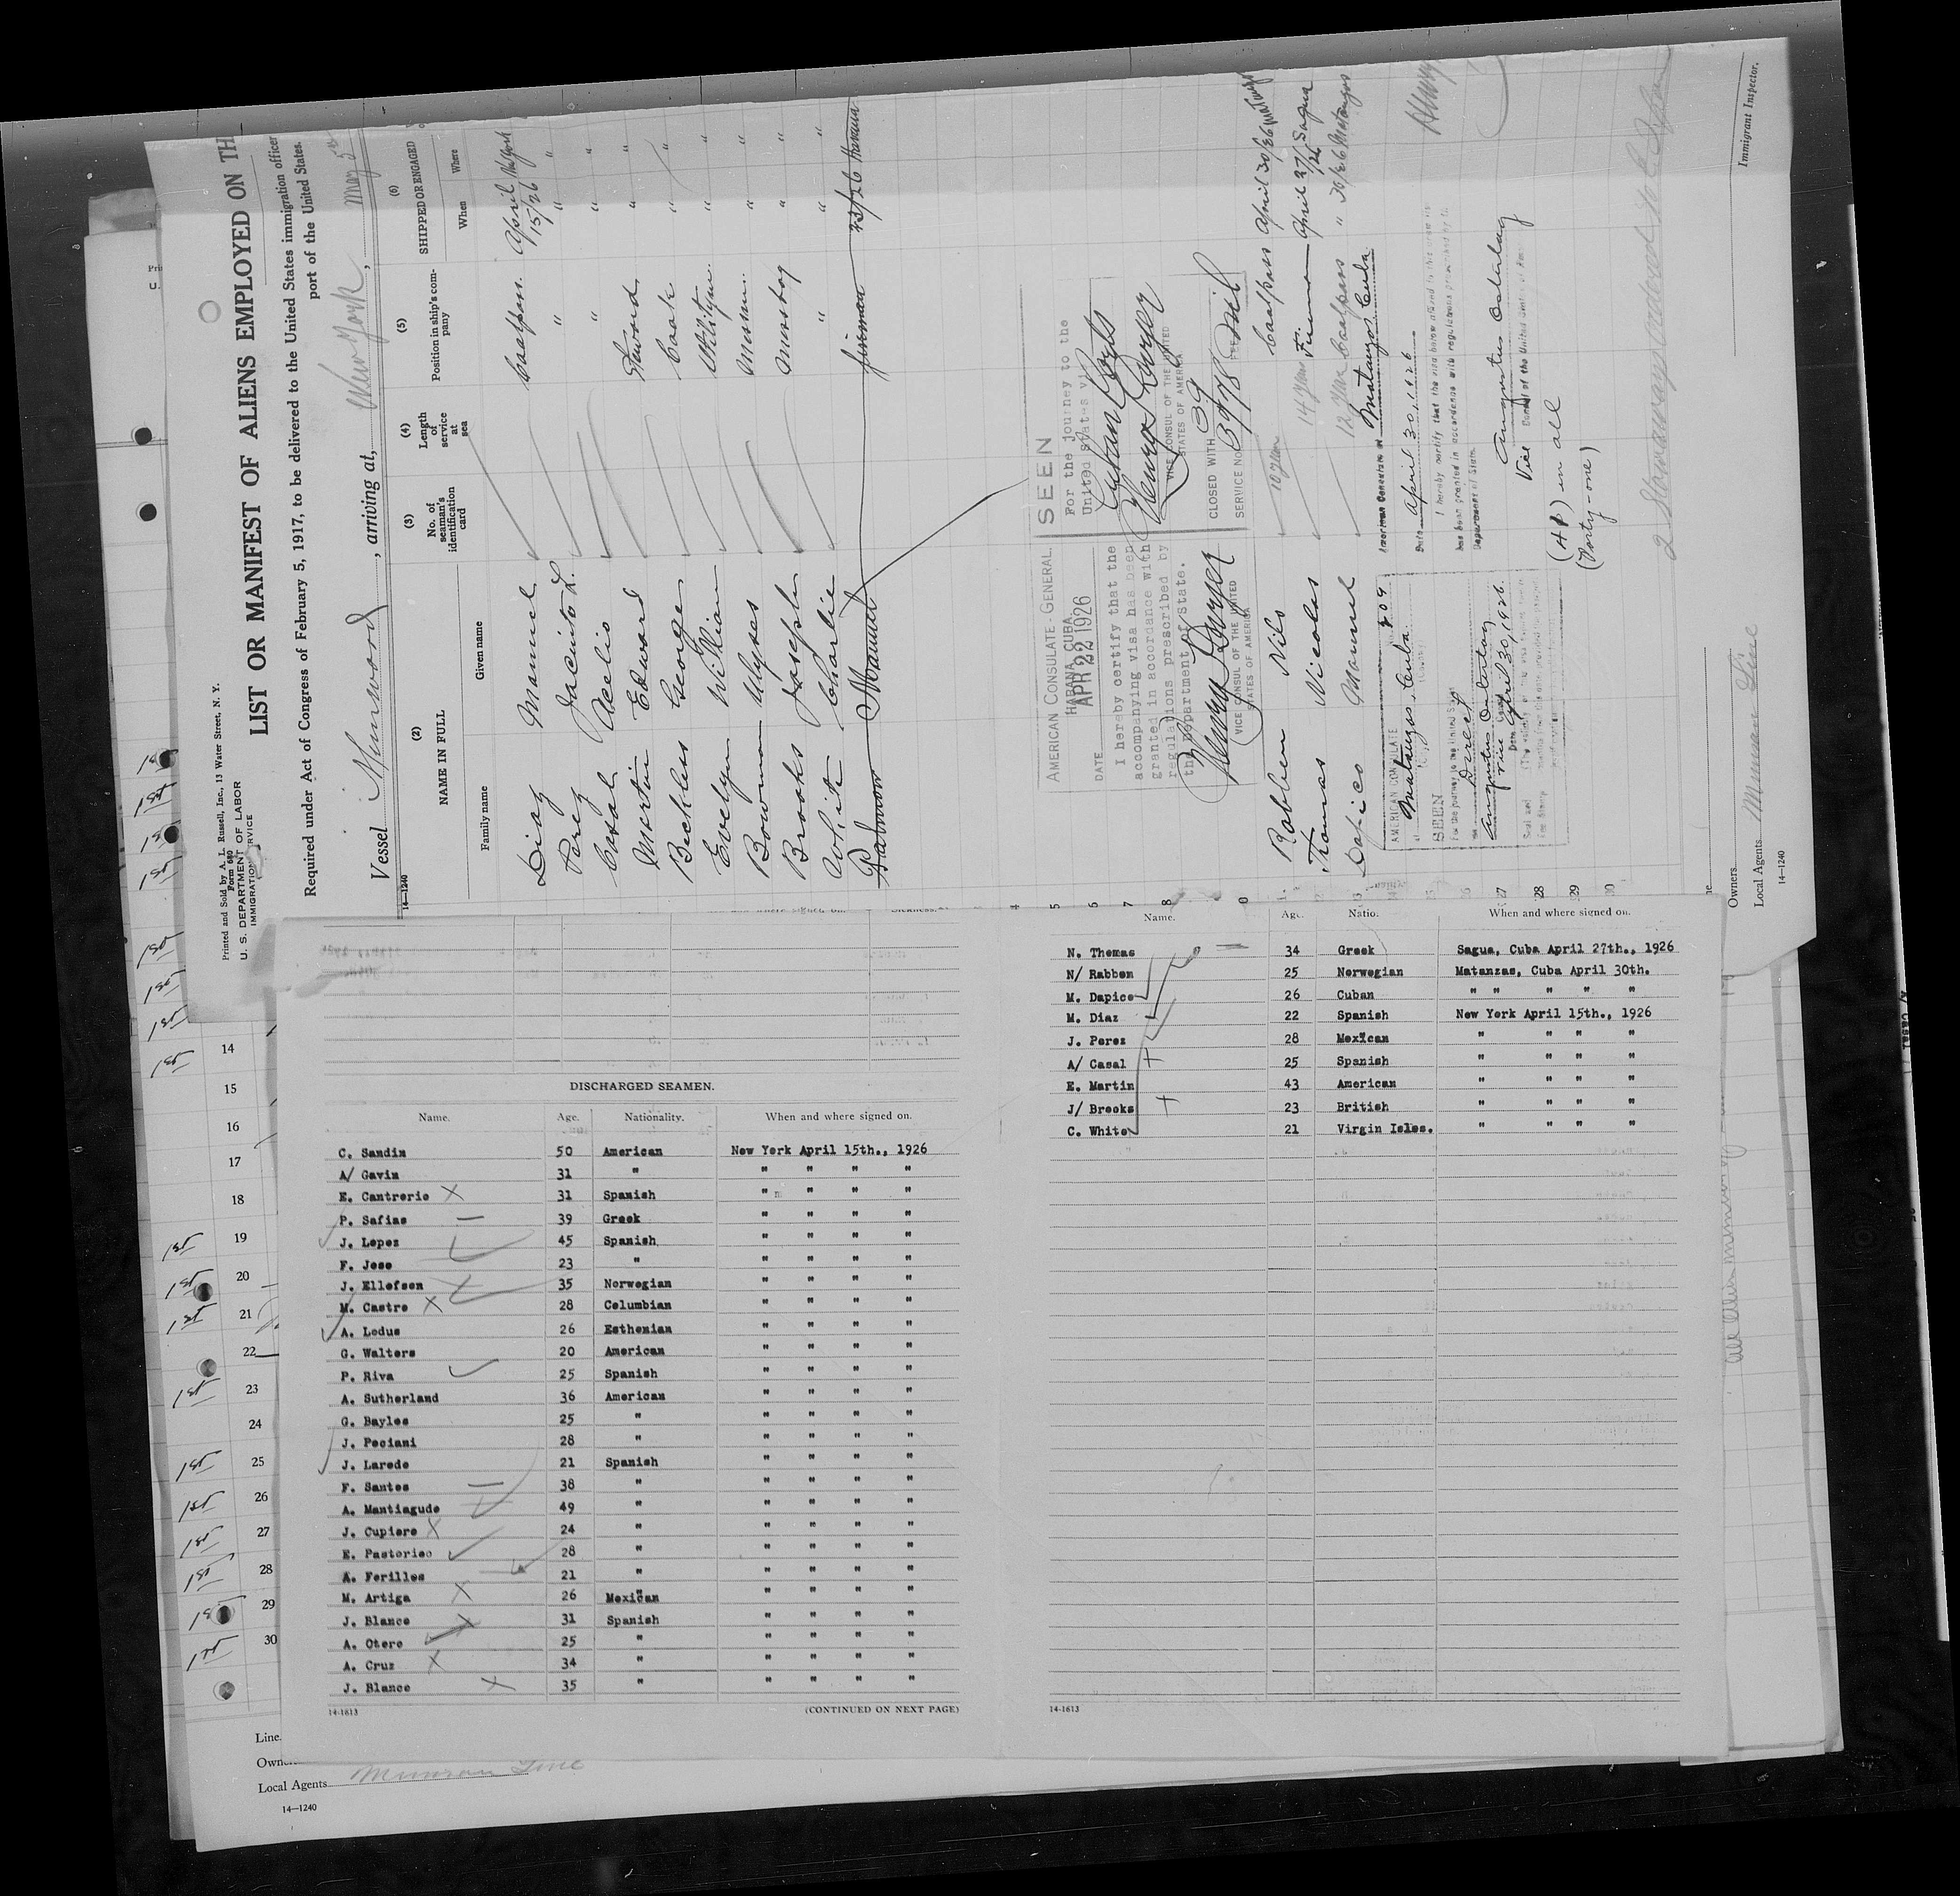 Printed and Sold by A. L. Russell, Inc., 13 Water Street, N. Y.
Form 680
U. S. DEPARTMENT OF LABOR
IMMIGRATION SERVICE
LIST OR MANIFEST OF ALIENS EMPLOYED ON TH
Required under Act of Congress of February 5, 1917, to be delivered to the United States immigration officer
port of the United States.
Vessel Munwood, arriving at, New York, May 5
14—1240
(2) (3) (4) (5) (6)
NAME IN FULL
No. of seaman's identification card
Length of service at sea
Position in ship's company
SHIPPED OR ENGAGED
Family name Given name When Where
Diaz Manuel Coalpass. April 15/26 New York
Perez Jacinto L. " " "
Casal Acelio " " "
Martin Edward Steword " "
Beckles George Cook " "
Evelyn William " "
Bowman Ulyses Messm. " "
Brooks Joseph Messboy " "
White Charlie " " "
Manuel fireman 23/26 Havana
AMERICAN CONSULATE-GENERAL
HABANA, CUBA.
DATE APR 22 1926
I hereby certify that the
accompanying visa has been
granted in accordance with
regulations prescribed by
the Department of State.
VICE CONSUL OF THE UNITED
STATES OF AMERICA
SEEN
For the journey to the
United States via
Cuban Ports
VICE CONSUL OF THE UNITED
STATES OF AMERICA
CLOSED WITH 39
SERVICE No. 3978 FEE
Rabben Nils 10 year Coalpass April 30/26 Matanzas
Thomas Nicolas 14 year Fireman April 27/26 Sagua
Dapico Manuel 12 year Coalpass " 30/26 Matanzas
AMERICAN CONSULATE 209
Matanzas, Cuba.
SEEN
For the journey to the United States
Direct
Date April 30, 1926.
American Consulate at Matanzas, Cuba
Date April 30, 1926
I hereby certify that the visa hereon affixed to this crew list
has been granted in accordance with regulations prescribed by the
Department of State.
Vice Consul of the United States of America
(41) in all
(Forty-one)
Immigrant Inspector.
Owners
Local Agents Munson Line
14—1240
DISCHARGED SEAMEN.
Name. Age. Nationality. When and where signed on.
C. Sandin 50 American New York April 15th., 1926
A/ Gavin 31 " " " " "
E. Cantrerio 31 Spanish " " " "
P. Safias 39 Greek " " " "
J. Lopez 45 Spanish " " " "
F. Jose 23 " " " " "
J. Ellefsen 35 Norwegian " " " "
M. Castro 28 Columbian " " " "
A. Ledus 26 Esthonian " " " "
G. Walters 20 American " " " "
P. Riva 25 Spanish " " " "
A. Sutherland 36 American " " " "
G. Bayles 25 " " " " "
J. Peciani 28 " " " " "
J. Larede 21 Spanish " " " "
F. Santes 38 " " " " "
A. Mantiagude 49 " " " " "
J. Cupiere 24 " " " " "
E. Pastoriso 28 " " " " "
A. Ferilles 21 " " " " "
M. Artiga 26 Mexican " " " "
J. Blance 31 Spanish " " " "
A. Otero 25 " " " " "
A. Cruz 34 " " " " "
J. Blance 35 " " " " "
14-1613 (CONTINUED ON NEXT PAGE)
Name. Age. Natio. When and where signed on.
N. Thomas 34 Greek Sagua, Cuba April 27th., 1926
N/ Rabben 25 Norwegian Matanzas, Cuba April 30th.
M. Dapico 26 Cuban " " " " "
M. Diaz 22 Spanish New York April 15th., 1926
J. Perez 28 Mexican " " " "
A/ Casal 25 Spanish " " " "
E. Martin 43 American " " " "
J/ Brooks 23 British " " " "
C. White 21 Virgin Isles. " " " "
14-1613
14
15
16
17
18
19
20
21
22
23
24
25
26
27
28
29
30
Line
Own
Local Agents Munson Line
14—1240